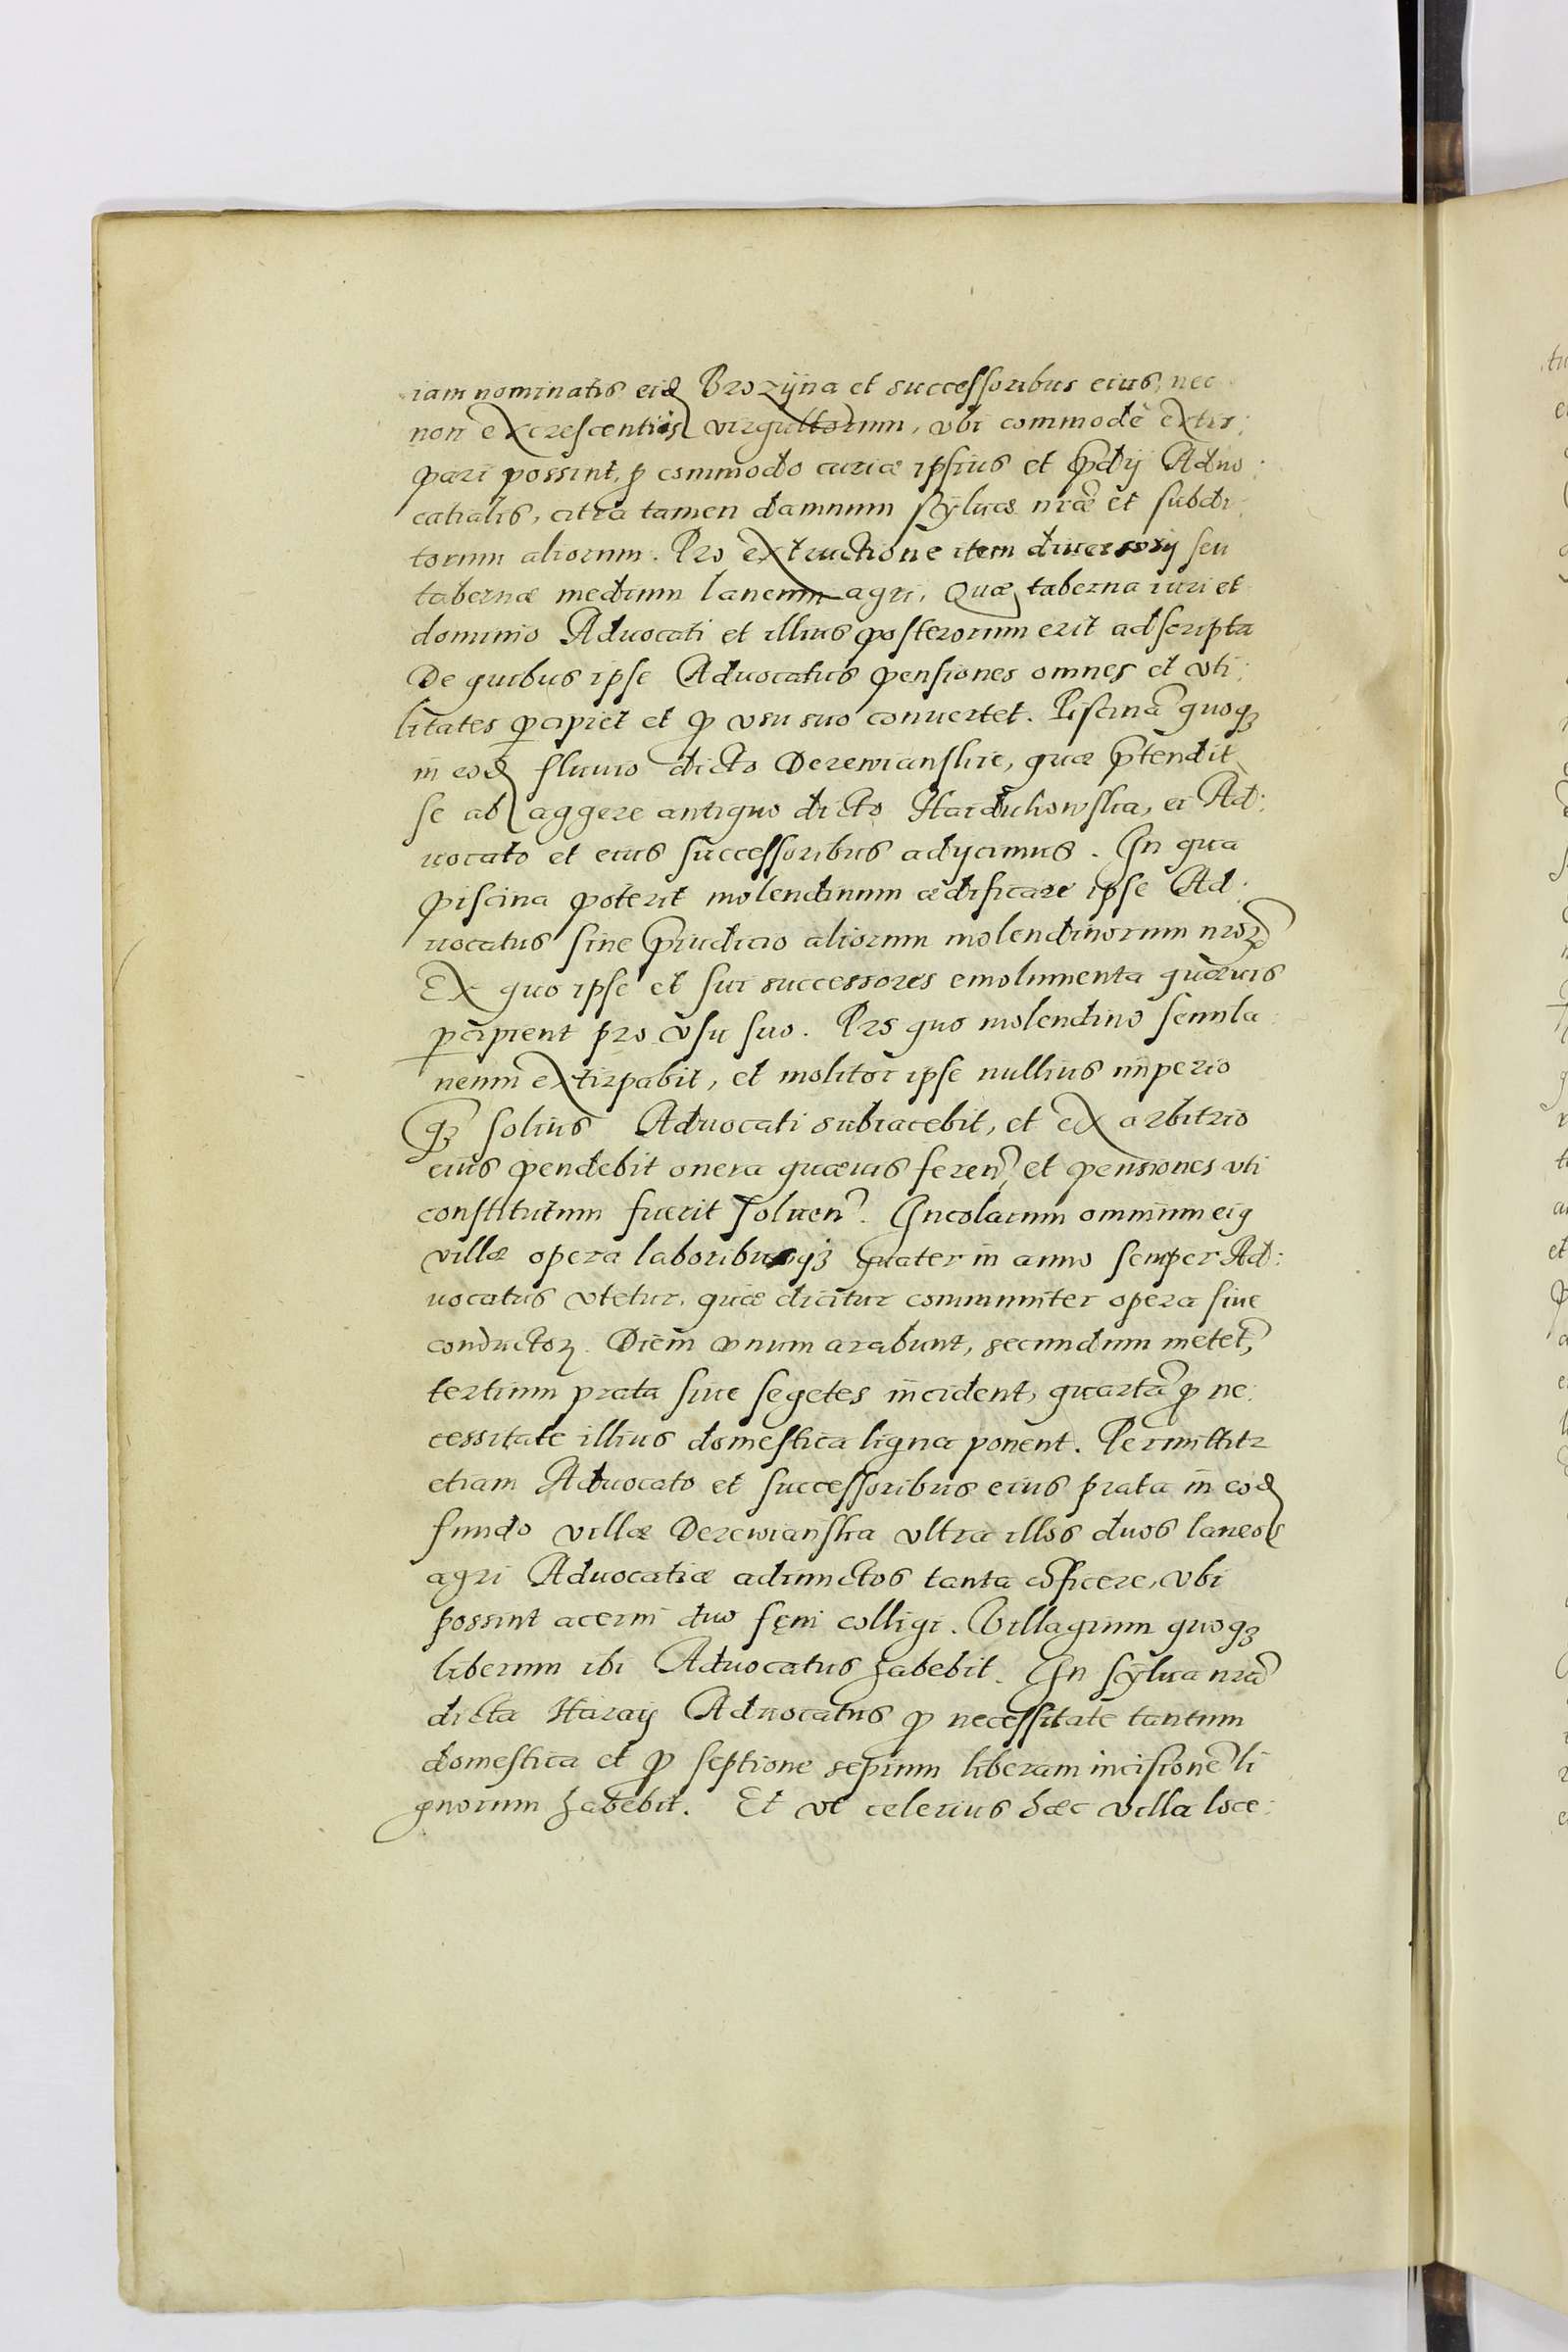 iam nominatis eid Brozÿna et successoribus eius, nec
non excrescentiis virgultorum, vbi commode extir:
pari possint, p commodo curiæ ipsius et pdij Aduo:
catialis, citra tamen damnum sÿluæ nræ et subdi:
torum aliorum. Pro extructione item diuersorij seu
tabernæ medium laneum agri. Quæ taberna iuri et
dominio Aduocati et illius posterorum erit adscripta
De quibus ipse Aduocatus pensiones omnes et vti:
litates pcipiet et p vsu suo conuertet. Piscina quoqȝ
in eod fluuio dicto Derewianskie, quæ ptendit
se ab aggere antiquo dicto Haidukowska, ei Ad:
uocato et eius successoribus adijcimus. In qua
piscina poterit molendinum ædificare ipse Ad:
uocatus sine piudicio aliorum molendinorum nroȝ
Ex quo ipse et sui successores emolumenta quæuis
pcipient pro vsu suo. Pro quo molendino semila:
neum extirpabit, et molitor ipse nullius imperio
qȝ solius Aduocati subiacebit, et ex arbitrio
eius pendebit onera quæuis feren, et pensiones vti
constitutum fuerit soluen. Incolarum omnium eiq
villæ opera laboribusqȝ quater in anno semper Ad:
uocatus vtetur, quæ dicitur communiter opera siue
conductoȝ. Diem vnum arabunt, secundum metet,
tertium prata siue segetes incident, quarta p ne:
cessitate illius domestica ligna ponent. Permittitr
etiam Aduocato et successoribus eius prata in eod
fundo villæ Derewianska vltra illos duos laneos
agri Aduocatiæ adiunctos tanta coficere, vbi
possint acerui duo fęni colligi. Villagium quoqȝ
liberum ibi Aduocatus habebit. In sÿlua nra
dicta Haraij Aduocatus p necessitate tantum
domestica et p septione sepium liberam incisione li
gnorum habebit. Et vt celerius hæc villa loce: